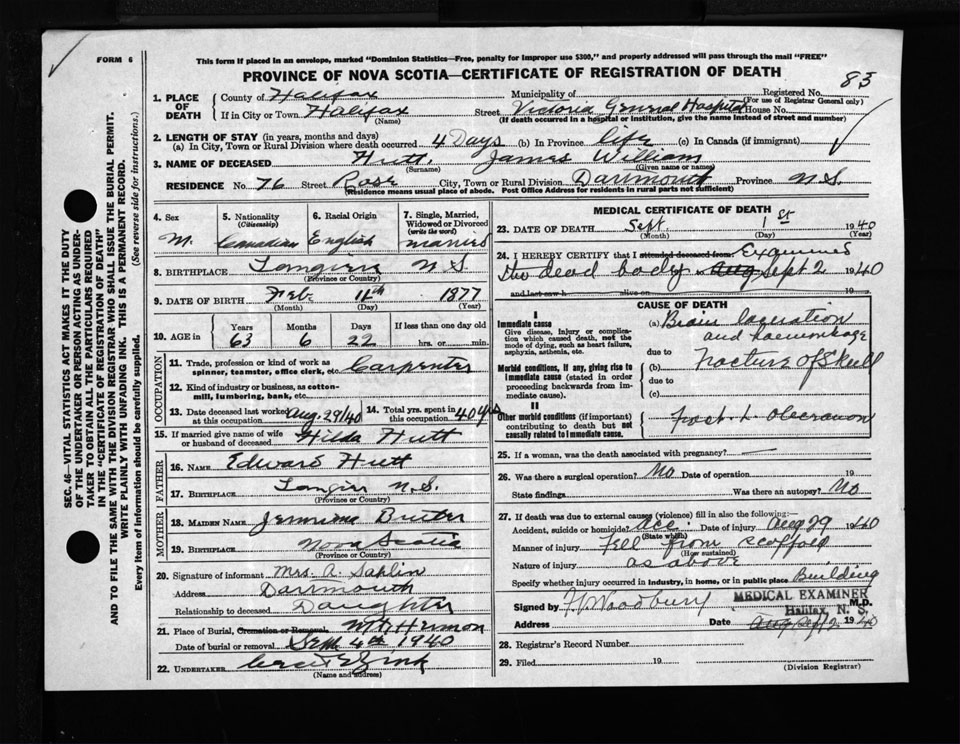 FORM 6
This form if placed in an envelope, marked "Dominion Statistics—Free, penalty for improper use $300," and properly addressed will pass through the mail "FREE"
PROVINCE OF NOVA SCOTIA—CERTIFICATE OF REGISTRATION OF DEATH
83
1. PLACE OF DEATH County of Halifax Municipality of Registered No.
(For use of Registrar General only)
If in City or Town Halifax Street Victoria General Hospital House No.
(Name) (If death occurred in a hospital or institution, give the name instead of street and number)
2. LENGTH OF STAY (in years, months and days)
(a) In City, Town or Rural Division where death occurred 4 Days (b) In Province life (c) In Canada (if immigrant)
3. NAME OF DECEASED Hutt, James William
(Surname) (Given name or names)
RESIDENCE No. 76 Street Rose City, Town or Rural Division Dartmouth Province N.S.
(Residence means usual place of abode. Post Office Address for residents in rural parts not sufficient)
4. Sex M.
5. Nationality (Citizenship) Canadian
6. Racial Origin English
7. Single, Married, Widowed or Divorced (write the word) married
8. BIRTHPLACE Tangier N.S.
(Province or Country)
9. DATE OF BIRTH Feb. 11th 1877
(Month) (Day) (Year)
10. AGE in Years Months Days If less than one day old
63 6 22 hrs. or min.
OCCUPATION
11. Trade, profession or kind of work as spinner, teamster, office clerk, etc. Carpenter
12. Kind of industry or business, as cotton-mill, lumbering, bank, etc.
13. Date deceased last worked at this occupation Aug. 29/40
14. Total yrs. spent in this occupation 40 yrs
15. If married give name of wife or husband of deceased Hilda Hutt
FATHER
16. NAME Edward Hutt
17. BIRTHPLACE Tangier N.S.
(Province or Country)
MOTHER
18. MAIDEN NAME
19. BIRTHPLACE Nova Scotia
(Province or Country)
20. Signature of informant Mrs. A.
Address Dartmouth
Relationship to deceased Daughter
21. Place of Burial, Cremation or Removal. Mt. Hermon
Date of burial or removal Sept. 4th 1940
22. UNDERTAKER
(Name and address)
MEDICAL CERTIFICATE OF DEATH
23. DATE OF DEATH Sept. 1st 1940
(Month) (Day) (Year)
24. I HEREBY CERTIFY that I attended deceased from Examined
the dead body Aug Sept 2 1940
and last saw h alive on 19
CAUSE OF DEATH
I
Immediate cause
Give disease, injury or complication which caused death, not the mode of dying, such as heart failure, asphyxia, asthenia, etc.
(a) Brain laceration
and haemorrhage
due to
Morbid conditions, if any, giving rise to immediate cause (stated in order proceeding backwards from immediate cause).
(b) Fracture of Skull
due to
(c)
II
Other morbid conditions (if important) contributing to death but not causally related to immediate cause.
Fract. L. Olecranon
25. If a woman, was the death associated with pregnancy? —
26. Was there a surgical operation? No Date of operation 19
State findings Was there an autopsy? No
27. If death was due to external causes (violence) fill in also the following:—
Accident, suicide or homicide? Acc. Date of injury Aug 29 1940
(State which)
Manner of injury Fell from scaffold
(How sustained)
Nature of injury as above
Specify whether injury occurred in industry, in home, or in public place Building
Signed by Woodbury M.D.
MEDICAL EXAMINER
Halifax, N. S.
Address Date Aug Sept 2 1940
28. Registrar's Record Number
29. Filed 19
(Division Registrar)
SEC. 46—VITAL STATISTICS ACT MAKES IT THE DUTY
OF THE UNDERTAKER OR PERSON ACTING AS UNDER-
TAKER TO OBTAIN ALL THE PARTICULARS REQUIRED
IN THE "CERTIFICATE OF REGISTRATION OF DEATH"
AND TO FILE THE SAME WITH THE DIVISION REGISTRAR WHO SHALL ISSUE THE BURIAL PERMIT.
WRITE PLAINLY WITH UNFADING INK. THIS IS A PERMANENT RECORD.
Every item of information should be carefully supplied. (See reverse side for instructions.)